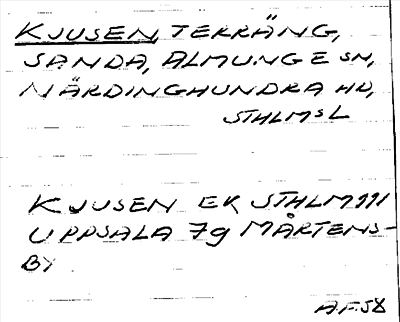 KJUSEN, TERRÄNG,
SANDA, ALMUNGE SN,
NÄRDINGHUNDRA HD,
STHLMS L
KJUSEN EK STHLM 111
UPPSALA 7g MÅRTENS-
BY
A.F.58